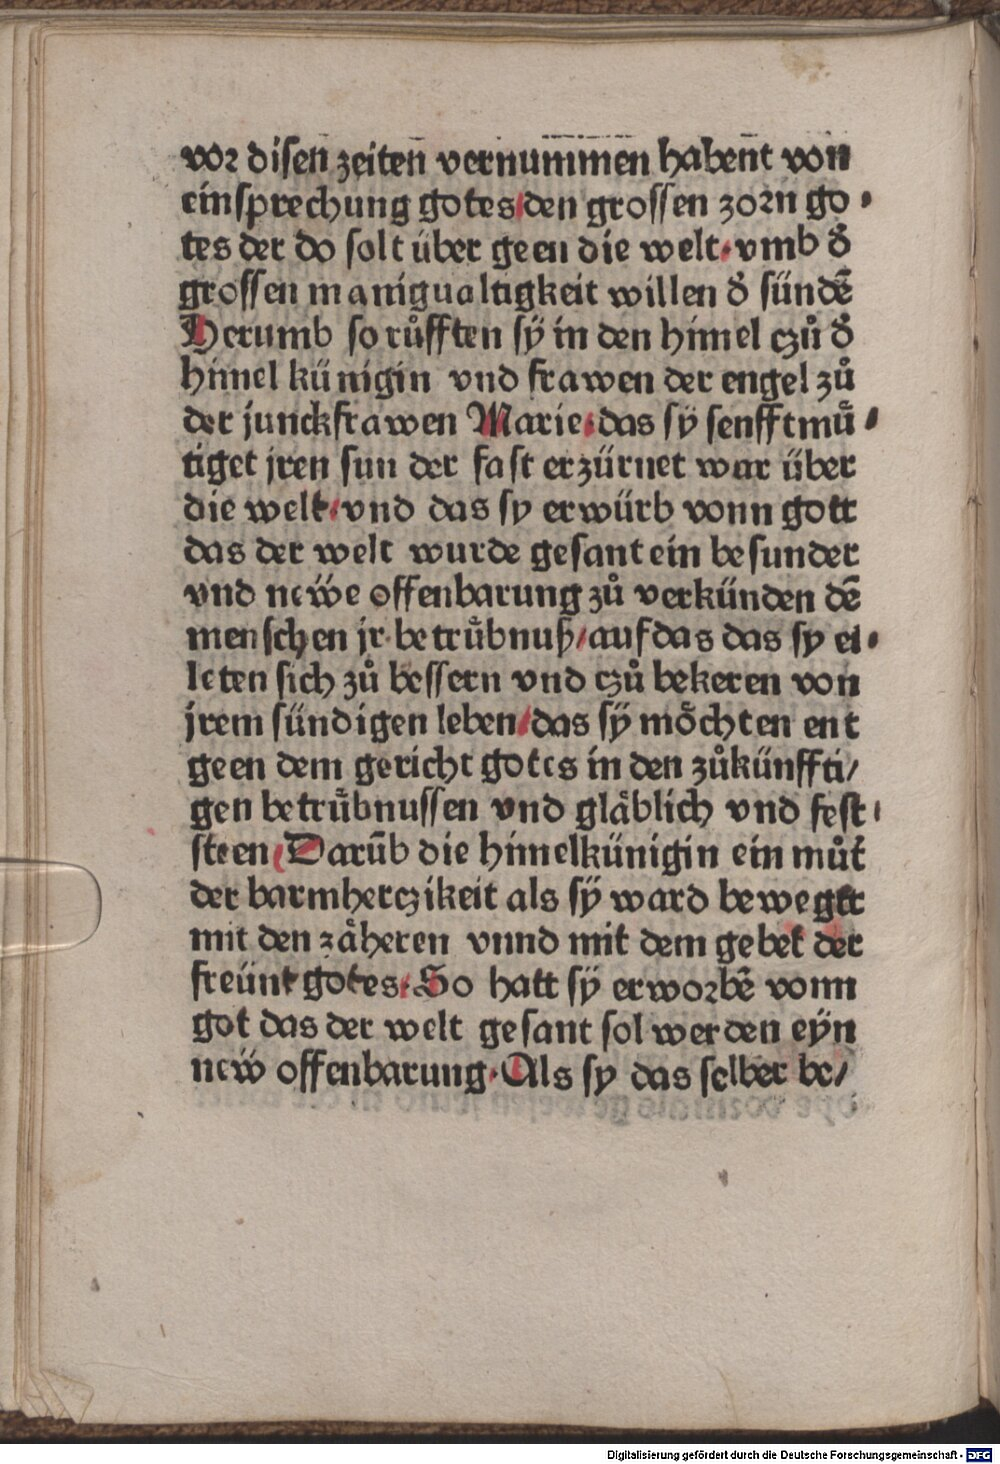 vor disen̄ zeiten̄ vernum̄men habēnt von
einsprechung gotes/den grossen zorn go⸗
tes der do solt über geen die welt·vmb d̕
grossen manigualtigkeit willen d̕ sündē
Herumb so růfften sÿ in den himel czů d̕
himel künigin vnd frawen der engel zů
der junckfrawen Marie·das sÿ senfftmuͤ⸗
tiget jren sun der fast erzürnet war über
die welt/vnd das sy erwürb vonn gott
das der welt wurde gesant ein besunder
vnd neẅe offenbarung zů verkünden dē
menschen jr betruͤbnuß/auf das das sy ei⸗
leten sich zů bessern vnd czů bekeren von
jrem sündigen leben/das sÿ moͤchten ent
geen dem gericht gotes in den zůkünffti/
gen betruͤbnussen vnd glaͤblich vnd fest
steen/Darūb die himelkünigin ein můt̕
der barmherczikeit als sÿ ward bewegtt
mit den zaͤheren vnnd mit dem gebet der
freünt gotes·So hatt sÿ erworbē vonn
got das der welt gesant sol werden eÿn
neẅ offenbarung·Als sy das selber be/
Digitalisierung gefördert durch die Deutsche Forschungsgemeinschaft - DFG